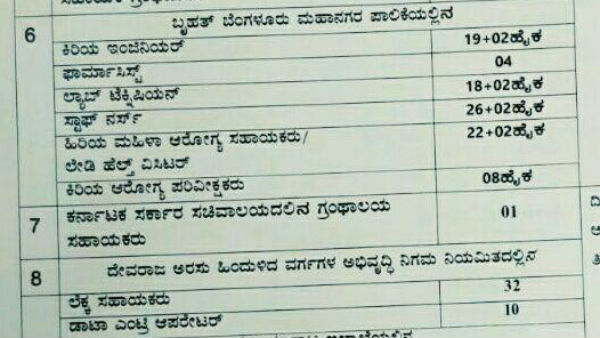 6 ಬೃಹತ್ ಬೆಂಗಳೂರು ಮಹಾನಗರ ಪಾಲಿಕೆಯಲ್ಲಿನ
ಕಿರಿಯ ಇಂಜಿನಿಯರ್ 19+02ಹೈಕ
ಫಾರ್ಮಾಸಿಸ್ಟ್ 04
ಲ್ಯಾಬ್ ಟೆಕ್ನಿಷಿಯನ್ 18+02ಹೈಕ
ಸ್ಟಾಫ್ ನರ್ಸ್ 26+02ಹೈಕ
ಹಿರಿಯ ಮಹಿಳಾ ಆರೋಗ್ಯ ಸಹಾಯಕರು/ 22+02ಹೈಕ
ಲೇಡಿ ಹೆಲ್ತ್ ವಿಸಿಟರ್
ಕಿರಿಯ ಆರೋಗ್ಯ ಪರಿವೀಕ್ಷಕರು 08ಹೈಕ
7 ಕರ್ನಾಟಕ ಸರ್ಕಾರ ಸಚಿವಾಲಯದಲಿನ ಗ್ರಂಥಾಲಯ 01
ಸಹಾಯಕರು
8 ದೇವರಾಜ ಅರಸು ಹಿಂದುಳಿದ ವರ್ಗಗಳ ಅಭಿವೃದ್ಧಿ ನಿಗಮ ನಿಯಮಿತದಲ್ಲಿನ
ಲೆಕ್ಕ ಸಹಾಯಕರು 32
ಡಾಟಾ ಎಂಟ್ರಿ ಆಪರೇಟರ್ 10